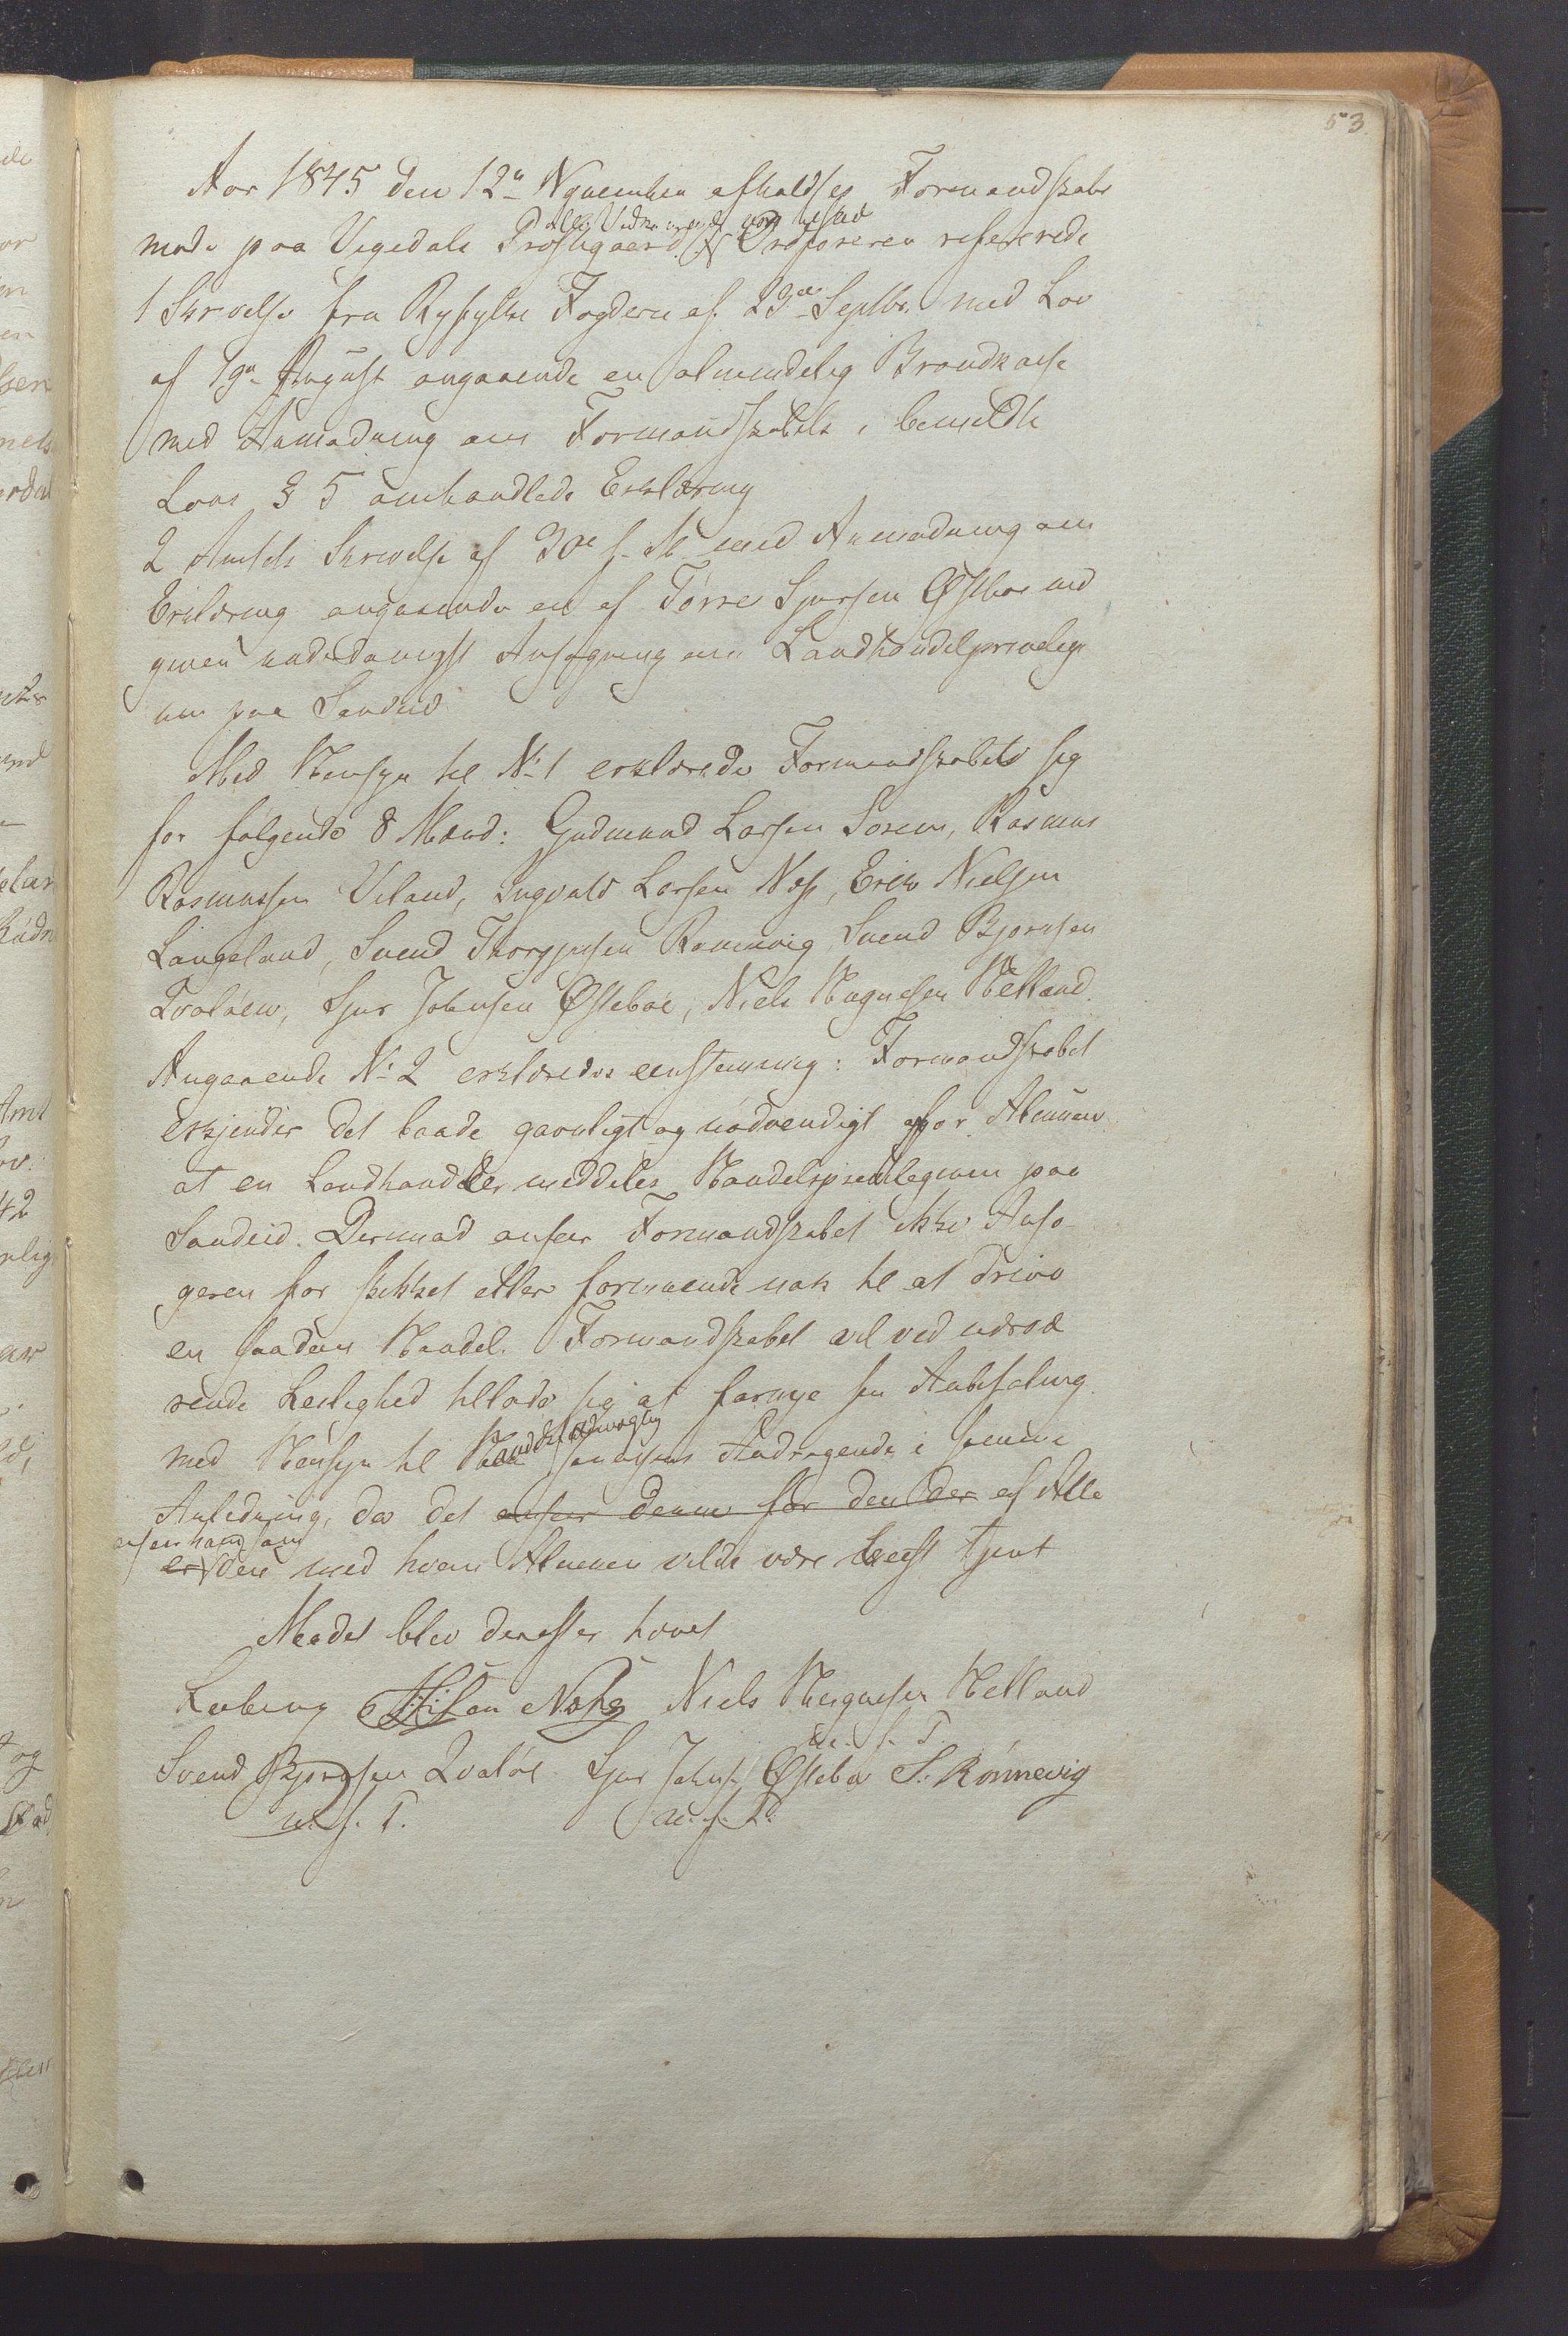 53
Aar 1845 den 12te November afholdtes Formandskabs
møde paa Vigedals Præstegaard. Alle Vedkommende vare tilstæde
Ordføreren refererede
1 Skrivelse fra Ryfylke Fogderie af 23de Septbr. med Lov
af 19de August angaaende en almindelig Brandkasse
med Anmodning om Formandskabets i bemeldte
Lovs § 5 omhandlede Erklæring
2 Amtets Skrivelse af 30te f. M. med Anmodning om
Erklæring angaaende en af Törre Sjursen Østbøe ind
given underdanigst Ansøgning om Landhandelprivilegi
um paa Sandeid
Med Hensyn til No 1 erklærede Formandskabet sig
for følgende 8 Mænd: Gudmund Larsen Sørem, Rasmus
Rasmussen Veland, Ingvald Larsen Næs, Erik Nielsen
Langeland, Svend Thorgersen Rønnevig, Svend Bjørnsen
Qvaløen, Sjur Johnsen Østebøe, Niels Magnesen Helland.
Angaaende No 2 erklæredes eenstemmig: Formandskabet
erkjender det baade gavnligt og nødvendigt for Almuen
at en Landhandler meddeles Handelsprivilegium paa
Sandeid. Derimod anseer Formandskabet ikke Ansø
geren for skikket eller formuende nok til at drive
en saadan Handel. Formandskabet vil ved nærvæ
rende Leilighed tillade sig at fornye sin Anbefaling
med Hensyn til Handelsfuldmægtig
Andragende i samme
Anledning, da det anseer denne for den der af Alle
anseer ham som
er den med hvem Almuen vilde være bedst tjent
Mødet blev derefter hævet
Niels Magnesen Helland
m. f. P.
Svend Bjørnsen Qvaløe Sjur Johns. Østebø S. Rönnevig
m. f. P. m. f. P.